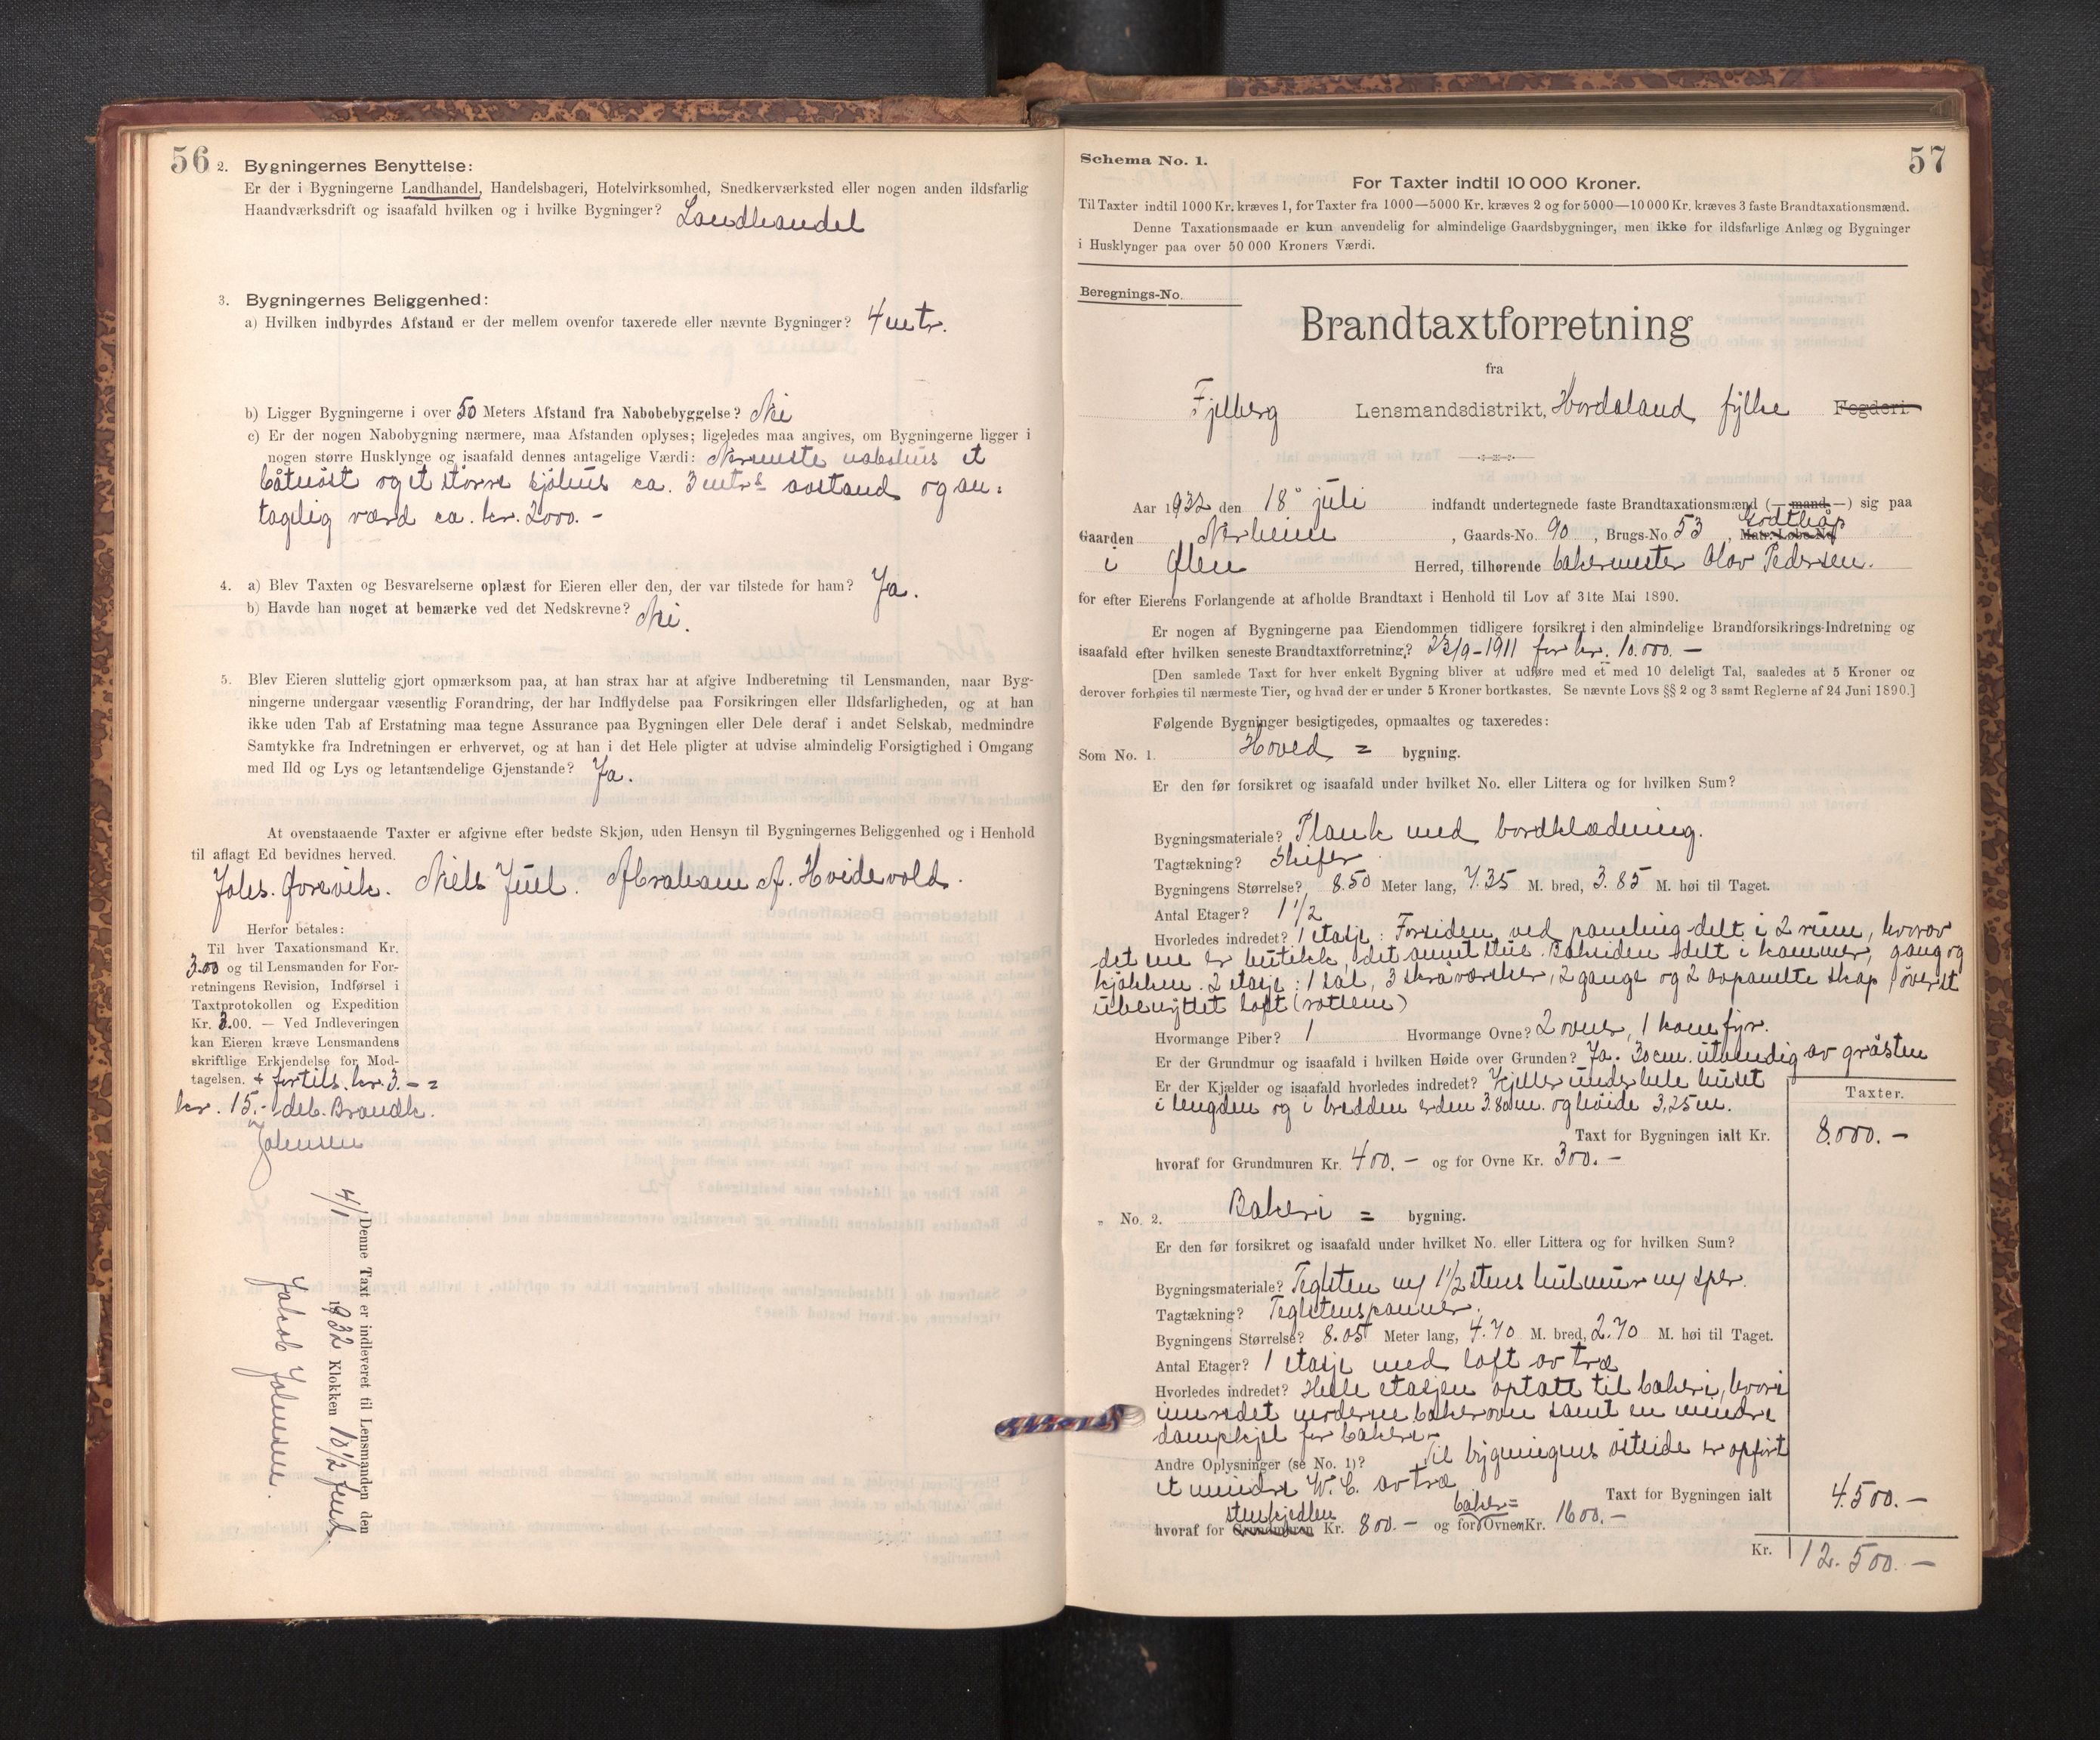 56
2. Bygningernes Benyttelse:
Er der i Bygningerne Landhandel, Handelsbageri, Hotelvirksomhed, Snedkerværksted eller nogen anden ildsfarlig
Haandværksdrift og isaafald hvilken og i hvilke Bygninger? Landhandel
3. Bygningernes Beliggenhed:
a) Hvilken indbyrdes Afstand er der mellem ovenfor taxerede eller nævnte Bygninger? 4 mtr.
b) Ligger Bygningerne i over 50 Meters Afstand fra Nabobebyggelse? Nei
c) Er der nogen Nabobygning nærmere, maa Afstanden oplyses; ligeledes maa angives, om Bygningerne ligger i
nogen større Husklynge og isaafald dennes antagelige Værdi: Nærmeste nabohus et
båtnöst og et større sjöhus ca. 3 mtrs avstand og an-
tagelig værd ca. kr. 2000.-
4. a) Blev Taxten og Besvarelserne oplæst for Eieren eller den, der var tilstede for ham? Ja.
b) Havde han noget at bemærke ved det Nedskrevne? Nei.
5. Blev Eieren sluttelig gjort opmærksom paa, at han strax har at afgive Indberetning til Lensmanden, naar Byg-
ningerne undergaar væsentlig Forandring, der har Indflydelse paa Forsikringen eller Ildsfarligheden, og at han
ikke uden Tab af Erstatning maa tegne Assurance paa Bygningen eller Dele deraf i andet Selskab, medmindre
Samtykke fra Indretningen er erhvervet, og at han i det Hele pligter at udvise almindelig Forsigtighed i Omgang
med Ild og Lys og letantændelige Gjenstande? Ja.
At ovenstaaende Taxter er afgivne efter bedste Skjøn, uden Hensyn til Bygningernes Beliggenhed og i Henhold
til aflagt Ed bevidnes herved.
Johs. Øvrevik. Niels Juel. Abraham A. Hvidevold.
Herfor betales:
Til hver Taxationsmand Kr.
3.00 og til Lensmanden for For-
retningens Revision, Indførsel i
Taxtprotokollen og Expedition
Kr. 3.00. — Ved Indleveringen
kan Eieren kræve Lensmandens
skriftlige Erkjendelse for Mod-
tagelsen. + fortils. kr. 3.- =
kr. 15.- deb. Brandk.
Johnsen
Denne Taxt er indleveret til Lensmanden den
4/1 1932 Klokken 10 1/2 fmd.
Jakob Johnsen.
57
Schema No. 1.
For Taxter indtil 10 000 Kroner.
Til Taxter indtil 1000 Kr. kræves 1, for Taxter fra 1000—5000 Kr. kræves 2 og for 5000—10 000 Kr. kræves 3 faste Brandtaxationsmænd.
Denne Taxationsmaade er kun anvendelig for almindelige Gaardsbygninger, men ikke for ildsfarlige Anlæg og Bygninger
i Husklynger paa over 50 000 Kroners Værdi.
Beregnings-No.
Brandtaxtforretning
fra
Fjelberg Lensmandsdistrikt, Hordaland fylke Fogderi.
Aar 1932 den 18° juli indfandt undertegnede faste Brandtaxationsmænd (—mand—) sig paa
Gaarden Nerheim, Gaards-No. 90, Brugs-No 53, Matr.-Løbe-No. Godthåp
i Ølen Herred, tilhørende bakermester Olav Pedersen.
for efter Eierens Forlangende at afholde Brandtaxt i Henhold til Lov af 31te Mai 1890.
Er nogen af Bygningerne paa Eiendommen tidligere forsikret i den almindelige Brandforsikrings-Indretning og
isaafald efter hvilken seneste Brandtaxtforretning? 23/9-1911 for kr. 10.000.-
[Den samlede Taxt for hver enkelt Bygning bliver at udføre med et med 10 deleligt Tal, saaledes at 5 Kroner og
derover forhøies til nærmeste Tier, og hvad der er under 5 Kroner bortkastes. Se nævnte Lovs §§ 2 og 3 samt Reglerne af 24 Juni 1890.]
Følgende Bygninger besigtigedes, opmaaltes og taxeredes:
Som No. 1. Hoved = bygning.
Er den før forsikret og isaafald under hvilket No. eller Littera og for hvilken Sum?
Bygningsmateriale? Plank med bordklædning.
Tagtækning? Skifer
Bygningens Størrelse? 8.50 Meter lang, 7.35 M. bred, 3.85 M. høi til Taget.
Antal Etager? 1 1/2
Hvorledes indredet? 1 etasje: Forsiden ved paneling delt i 2 rum, hvorav
det ene er butikk, det annet stue. Baksiden delt i kammer, gang og
kjøkken. 2 etasje: 1 sal, 3 skråværelser, 2 gange og 2 avpanelte skap, øverst
ubenyttet loft (rottene)
Hvormange Piber? 1 Hvormange Ovne? 2 ovner, 1 komfyr.
Er der Grundmur og isaafald i hvilken Høide over Grunden? Ja. 30 cm. utvendig av gråsten
Er der Kjælder og isaafald hvorledes indredet? Kjeller under hele huset
i lengden og i bredden er den 3.80 m. og høide 3,25 m.
Taxter.
Taxt for Bygningen ialt Kr. 8.000.-
hvoraf for Grundmuren Kr. 400.- og for Ovne Kr. 300.-
„ No. 2. Bakeri = bygning.
Er den før forsikret og isaafald under hvilket No. eller Littera og for hvilken Sum?
Bygningsmateriale? Teglsten m/ 1 1/2 stens hulmur m/ sper.
Tagtækning? Teglstenspanner.
Bygningens Størrelse? 8.05 Meter lang, 4.70 M. bred, 2.70 M. høi til Taget.
Antal Etager? 1 etasje med loft av træ
Hvorledes indredet? Hele etasjen optatt til bakeri, hvori
innredet moderne bakerovn samt en mindre
dampkjel for bakeri-
Andre Oplysninger (se No. 1)? Til bygningens østside er opført
et mindre W. C. av træ
Taxt for Bygningen ialt 4.500.-
stenkjedlen baker=
hvoraf for Grundmuren Kr. 800.- og for Ovnen Kr. 1600.-
Kr. 12.500.-